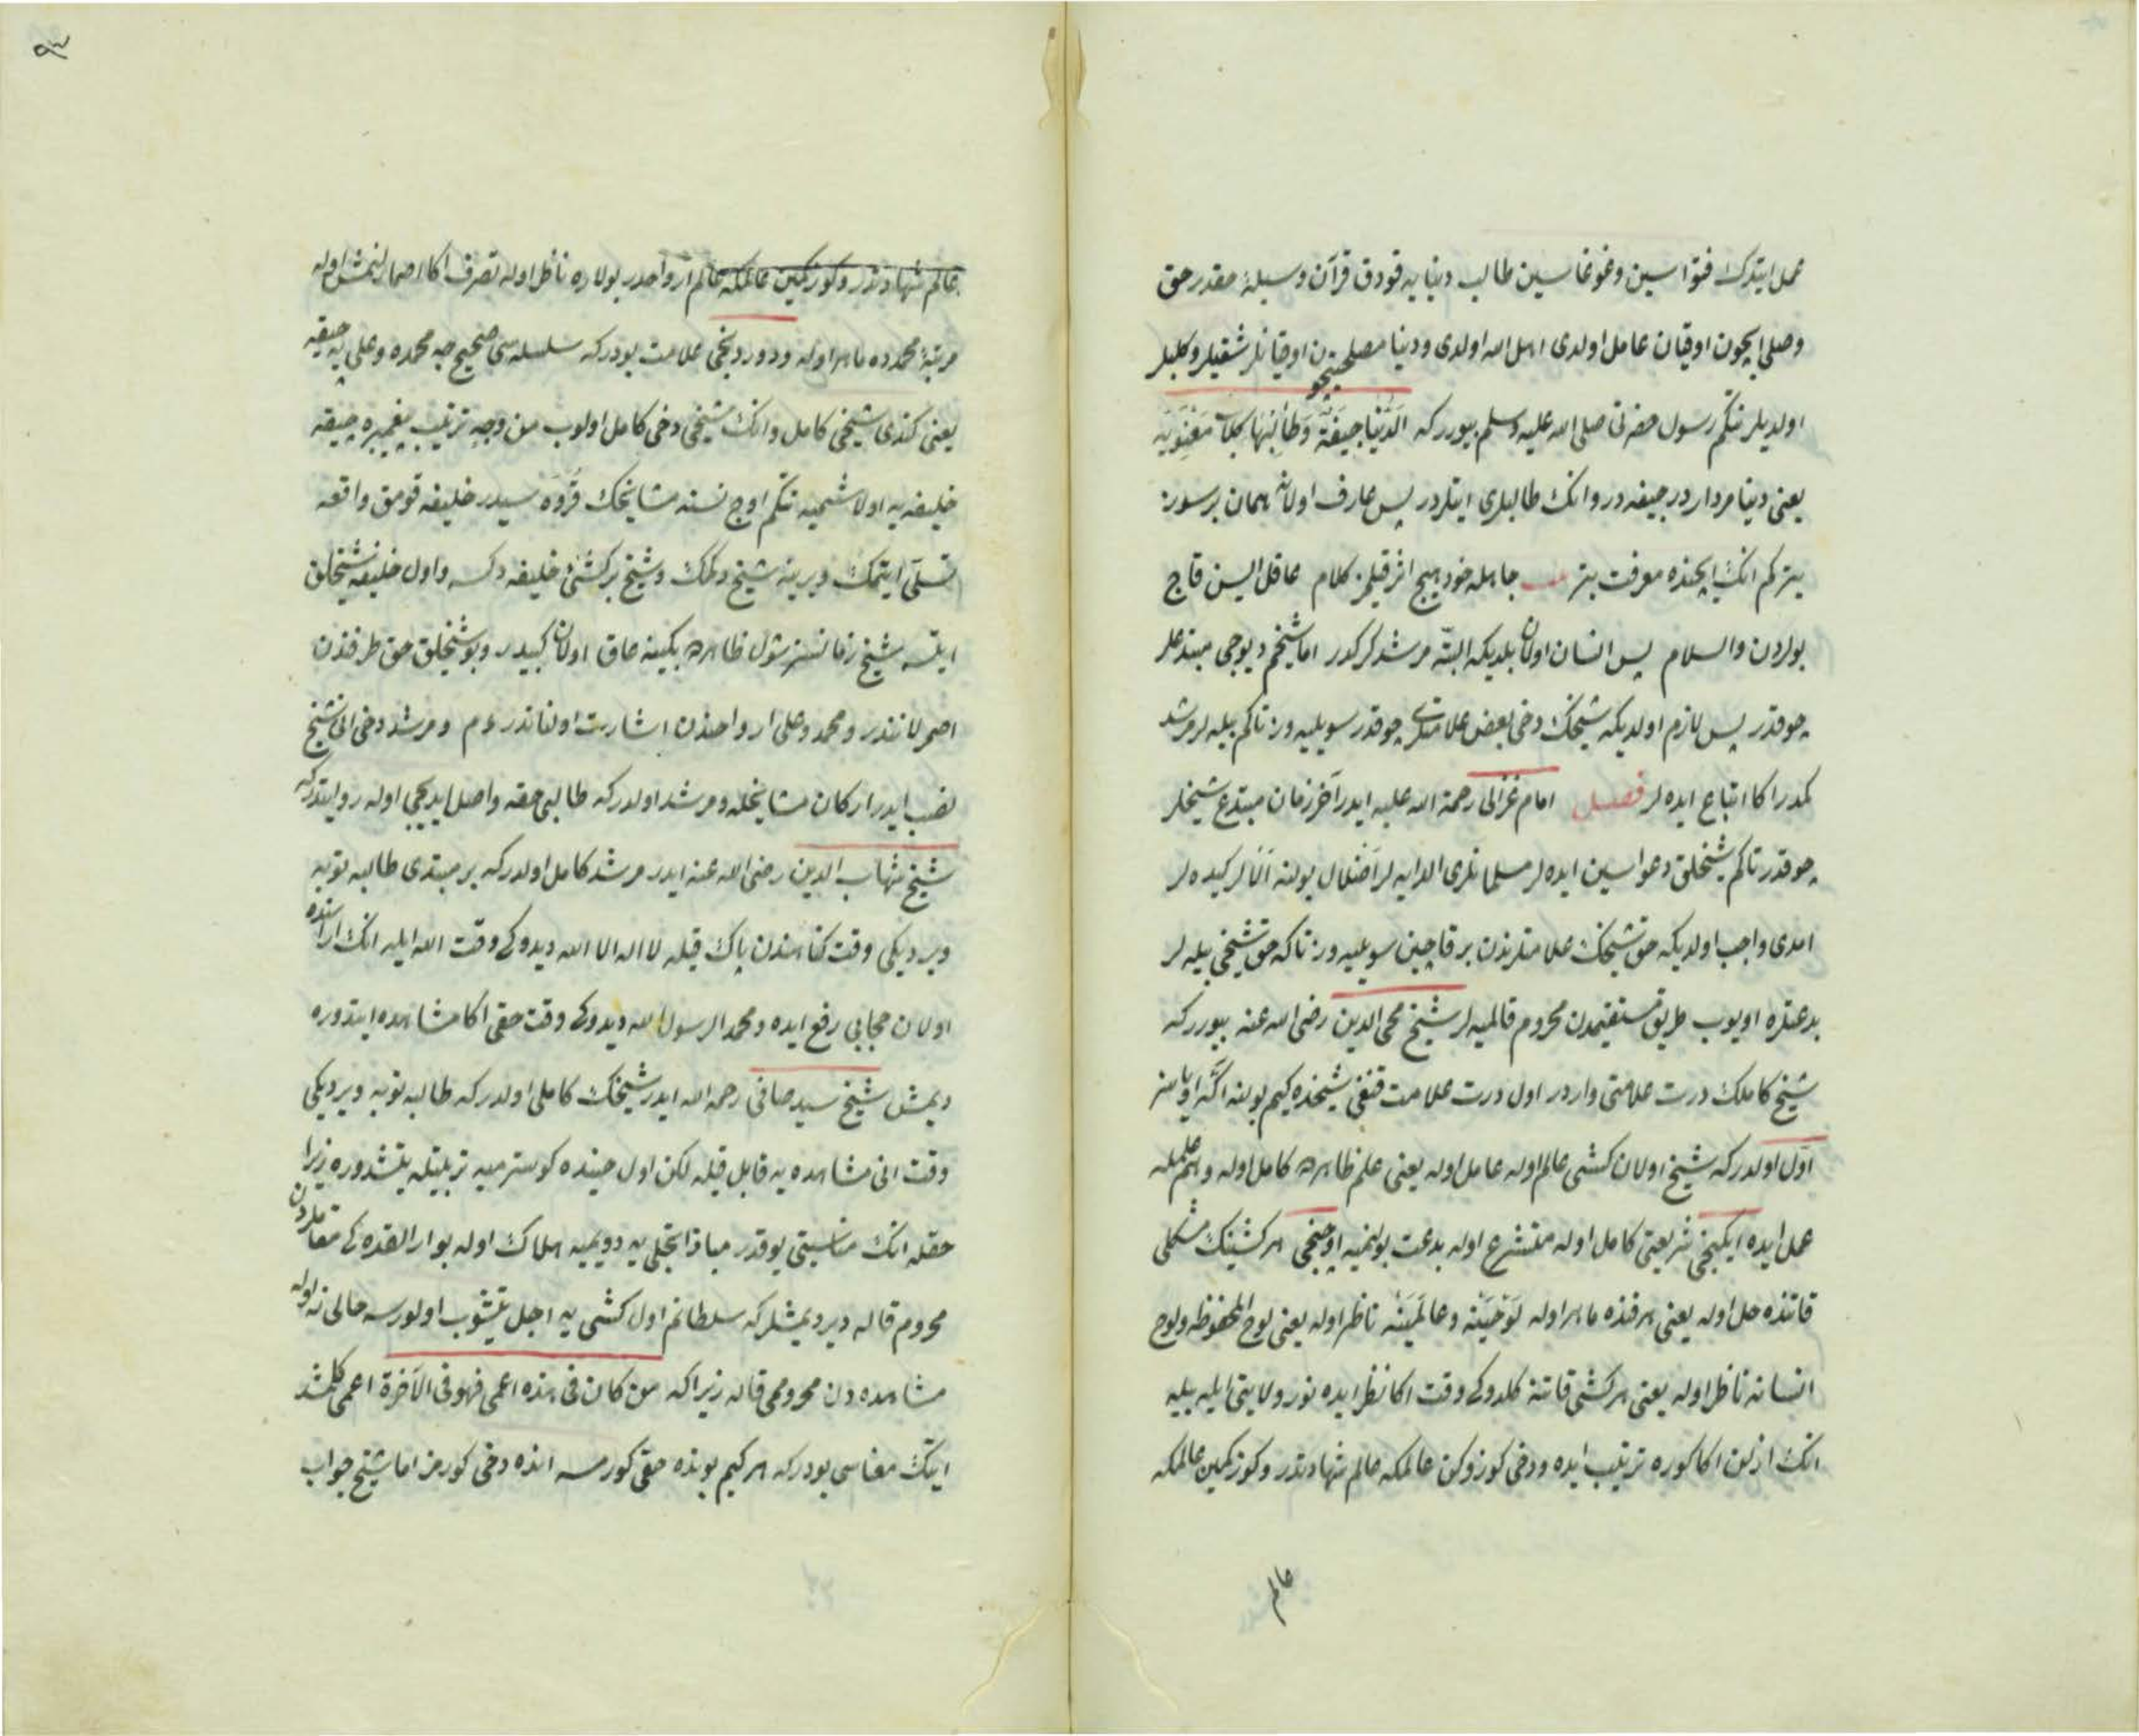 عمل ایتدك فتواسین وغوغاسین طالب دنیایه قودق قرآن وسیلۀ مقدر حق
وصلی ایچون اوقیان عامل اولدی اهل الله اولدی ودنیا مصلحتیچون اوقیانلر شقیلر وكلبلر
اولدیلر نتكم رسول حضرتی صلی الله علیه وسلم بیوررکه الدُّنْیَا جِیفَةٌ وَطَالِبُهَا كِلَابٌ
یعنی دنیا مرداردر جیفه در وانك طالبلری ایتلردر پس عارف اولانه همان بر سوز
یتركم انك ایچنده معرفت بتر جاهله خود هیچ اثر قیلمز كلام عاقل ایسن قاچ
بولردن والسلام پس انسان اولان بلدیكه البته مرشد كركدر اما شیخم دیوجی مبتدعلر
چوقدر پس لازم اولدیكه شیخك دخی بعض علامتلری چوقدر سویلیه وز تاكم بیله لر مرشد
كمدر اكا اتباع ایده لر فصل امام غزالی رحمة الله علیه ایدر آخر زمان مبتدع شیخلر
چوقدر تاكم شیخلق دعواسین ایده لر مسلمانلری الدایه لر اضلال یولنه آنلر كیده لر
امدی واجب اولدیكه حق شیخك علامتلرندن بر قاچین سویلیه وز تاكه حق شیخی بیله لر
بدعتلره اویوب طریق مستقیمدن محروم قالمیه لر شیخ محی الدین رضی الله عنه بیوررکه
شیخ كاملك درت علامتی واردر اول درت علامت قنغی شیخده كیم بولنه اكا اویاسز
اول اولدركه شیخ اولان كشی عالم اوله عامل اوله یعنی علم ظاهرده كامل اوله وهم علمله
عمل ایده ایكینجی شریعتی كامل اوله متشرع اوله بدعت بولنمیه اوچنجی هر كشینك مشكلی
قاتنده حل اوله یعنی هر فنده ماهر اوله لَوْحَیْنَه وعالَمَیْنَه ناظر اوله یعنی لوح المحفوظه ولوح
انسانه ناظر اوله یعنی هر كشی قاتنه كلدوكی وقت اكا نظر ایده نور ولایتی ایله بیلیه
انك ازلن اكا كوره ترتیب ایده ودخی كوزوكن عالمكه عالم شهادتدر وكوزكمین عالمكه
عالم
عالم شهادتدر وكوزكمین عالمكه عالم ارواحدر بولاره ناظر اوله تصرف اكا اصمارلنمش اوله
مرتبۀ محمدده ماهر اوله ودوردنجی علامت بودركه سلسله سی صحیح جه محمده وعلی یه چیقه
یعنی كندی شیخی كامل وانك شیخی دخی كامل اولوب من وجه ترتیب پیغمبره چیقه
خلیفه یه اولاشمیه نتكم اوچ نسنه مشایخك قُرُوه سیدر خلیفه قومق واقعه
تسلی ایتمك ویرینه شیخ دكمك وشیخ بر كشی خلیفه دكسه واول خلیفه شیخلق
ایتسه شیخ رضاسنسز شول ظاهرده بكینه عاق اولان كبیدر وبو شیخلق حق طرفندن
اصمرلانندر ومحمد وعلی ارواحندن اشارت اولنانندر ءم ومرشد دخی انی شیخ
نصب ایدر اركان مشایخله ومرشد اولدركه طالبی حقه واصل ایدیجی اوله روایتدركه
شیخ شهاب الدین رضی الله عنه ایدر مرشد كامل اولدركه بر مبتدی طالبه توبه
ویردیكی وقت كناهندن پاك قیله لا اله الا الله دیدوكی وقت الله ایله انك اراسنده
اولان حجابی رفع ایده ومحمد الرسول الله دیدوكی وقت حقی اكا مشاهده ایتدوره
دیمش شیخ سید صافی رحمه الله ایدر شیخك كاملی اولدركه طالبه توبه ویردیكی
وقت انی مشاهده یه قابل قیله لكن اول حینده كوسترمیه تربیتله یتشدوره زیرا
حقله انك مناسبتی یوقدر مباذا تجلی یه دویمیه هلاك اوله بو ارالقده كی مقاملردن
محروم قاله دیر دیمشلركه سلطانم اول كشی یه اجل یتیشوب اولورسه حالی نه اوله
مشاهده دن محرومی قاله زیراكه من كان فی هذه اعمی فهو فی الآخرة اعمی كلمشدر
ایتك معناسی بودركه هر كیم بونده حقی كورمسه انده دخی كورمز اما شیخ جواب